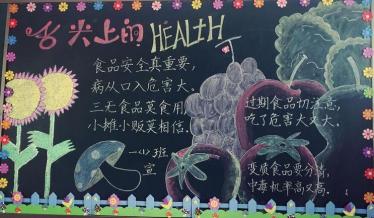 舌尖上的HEALTH
食品安全真重要,
病从口入危害大。
三无食品莫食用,
小摊小贩莫相信。
一(2)班
宣
过期食品切注意,
吃了危害大又大。
变质食品要分清,
中毒机率高又高.